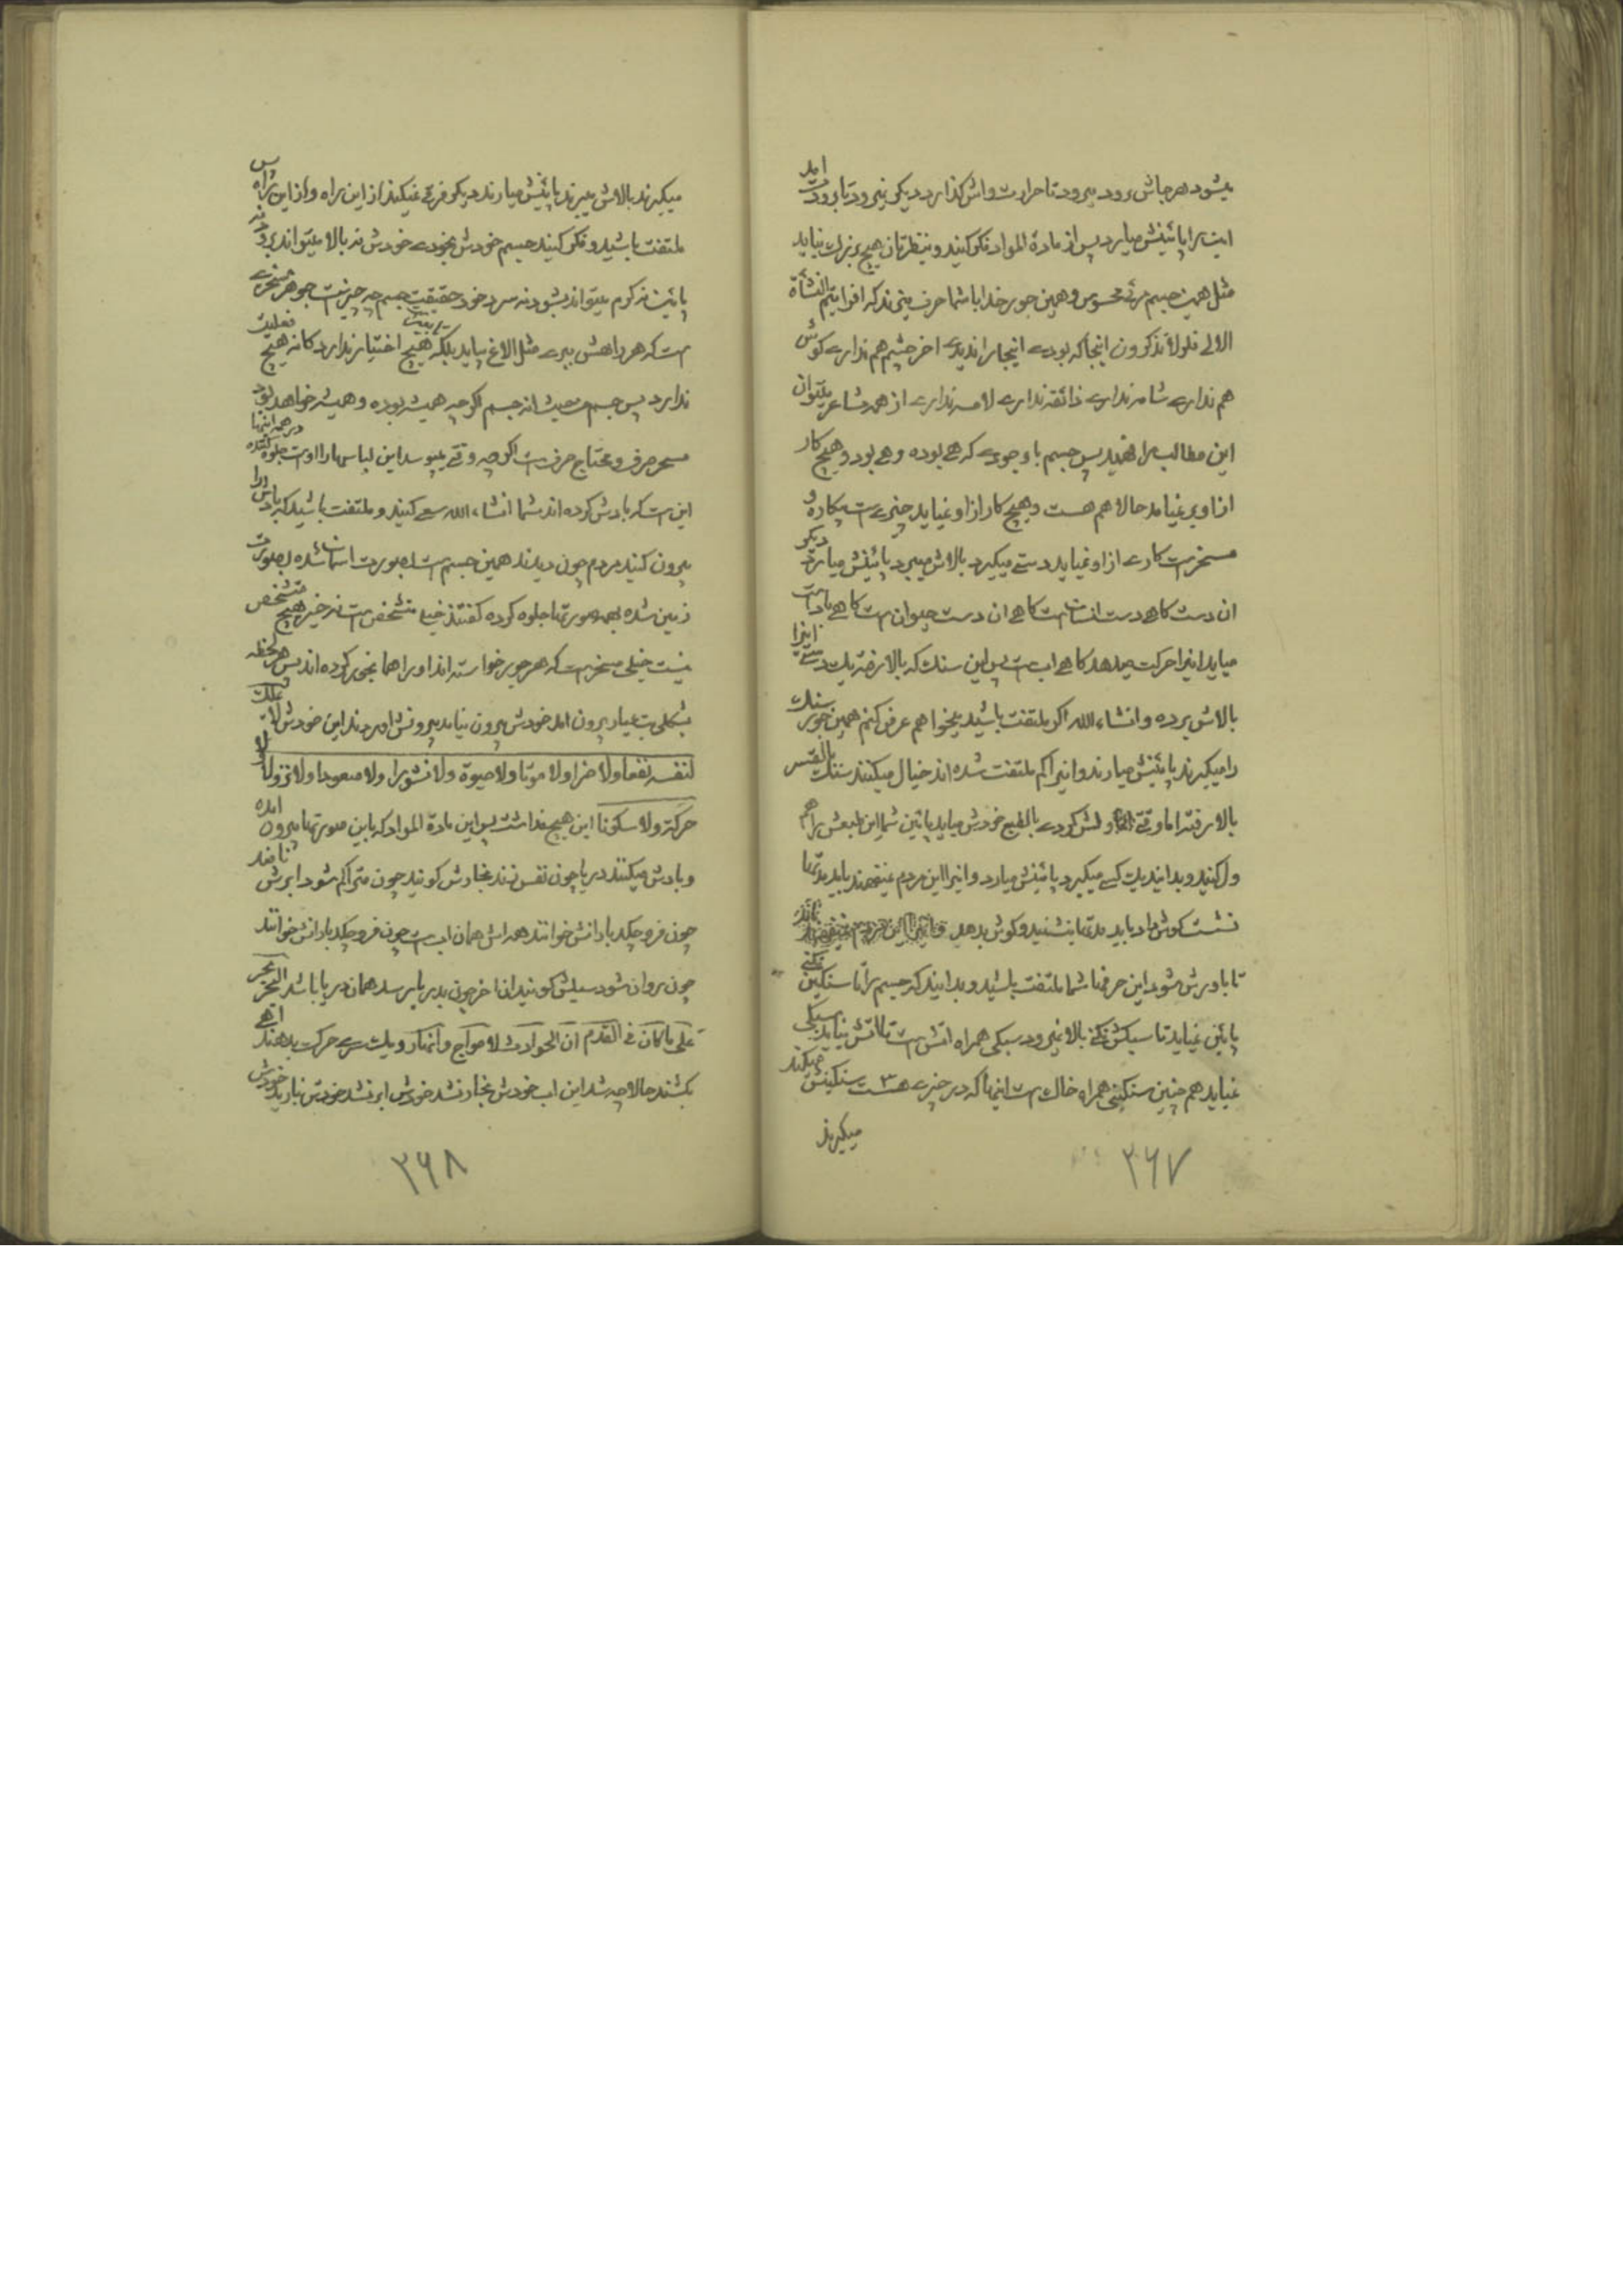 میشود هر جاش رود میرود تا حرارت واش کذارد دیکر نمیرود تا برودت امد
اینرا پائینش میارد پس از مادة المواد فکر کنید و بنظرتان هیچ بزرک نیاید
مثل همین جسم مرئی محسوس و همین جور خدا با شما حرف میزند که افرایتم النشأة
الاولی فلولا تذکرون اینجا که بودی اینجا را ندیدی اخر چشم هم نداری کوش
هم نداری شامه نداری ذائقه نداری لامسه نداری از همه مشاعر میتوان
این مطالب را فهمید پس جسم با وجودی که هی بوده و هی بود و هیچ کار
از او بر نمیامد حالا هم هست و هیچ کار از او نمیاید چیزی ست بیکاره و
مسخر ست کاری از او نمیاید دستی میکیرد بالاش میبرد پائینش میارد دیکر
ان دست کاهی دست انسان ست کاهی ان دست حیوان ست کاهی باد ست
میاید اینرا حرکت میدهد کاهی اب ست پس این سنک که بالا رفته یک دستی اینرا
بالاش برده و انشاء الله اکر ملتفت باشید میخواهم عرض کنم همین جور سنک
را میکیرند پائینش میارند و اینرا کم ملتفت شده اند خیال میکنند سنک بالقسر
بالا رفته اما وقتی ولش کردی بالطبع خودش میاید پائین شما این طبعش را هم
ول کنید و بدانید یک کسی میکیرد پائینش میارد و اینرا این مردم نمیفهمند باید مدتها
نشست کوش داد باید مدتها بنشینید و کوش بدهید
تا باورش شود این حرفها شما ملتفت باشید و بدانید که جسم را تا سنکین نکنی
پائین نمیاید تا سبکش نکنی بالا نمیرود سبکی همراه اتش ست تا اتش نیاید سبکی
نمیاید هم چنین سنکینی همراه خاک ست اینها که در چیزی هست سنکینش میکند
میکیرند
۳۶۷
میکیرند بالاش میبرند پائینش میارند دیکر فرقی نمیکند از این راه و از این راه پس
ملتفت باشید و فکر کنید جسم خودش بخودی خودش نه بالا میتواند برود نه
پائین نه کرم میتواند بشود نه سرد خود حقیقت جسم چه چیز ست جوهر مسخری
ست که هر راهش ببری مثل الاغ بیاید بلکه هیچ اختیار ندارد کانه هیچ فعلیت
ندارد پس جسم من حیث انه جسم اکرچه همیشه بوده و همیشه خواهد بود
مسخر صرف و محتاج صرف ست اکرچه وقتی بپوسد این لباسها را اوست جلوه کننده در همه اینها
این ست که یادش کرده اند شما انشاء الله سعی کنید و ملتفت باشید که
بیرون کنید مردم چون دیدند همین جسم ست بصورت اسمان شده بصورت
زمین شده بهمه صورتها جلوه کرده کفتند خیلی متشخص ست نه خیر هیچ متشخص
نیست خیلی مسخر ست که هر جور خواسته اند او را همانجور کرده اند پس هر لحظه
بشکلی بت عیار برون امد خودش بیرون نیامد بیرونش اوردند این خودش لا یملک
لنفسه نفعا ولا ضرا ولا موتا ولا حیوة ولا نشورا ولا صعودا ولا نزولا ولا
حرکة ولا سکونا این هیچ نداشت پس این مادة المواد که باین صورتها بیرون امده
و یادش میکنند دریا چون نفس زند بخارش کویند چون متراکم شود ابرش نامند
چون فرو چکد بارانش خوانند همه اش همان اب ست چون فرو چکد بارانش خوانند
چون روان شود سیلش کویند از اخر چون بدریا برسد همان دریا باشد البحر بحر
علی ما کان فی القدم ان الحوادث لامواج وانهار ویک سری حرکت بدهند ابی
بکشند حالا چه شد این اب خودش بخار نشد خودش ابر نشد خودش نبارید خودش
۳۶۸